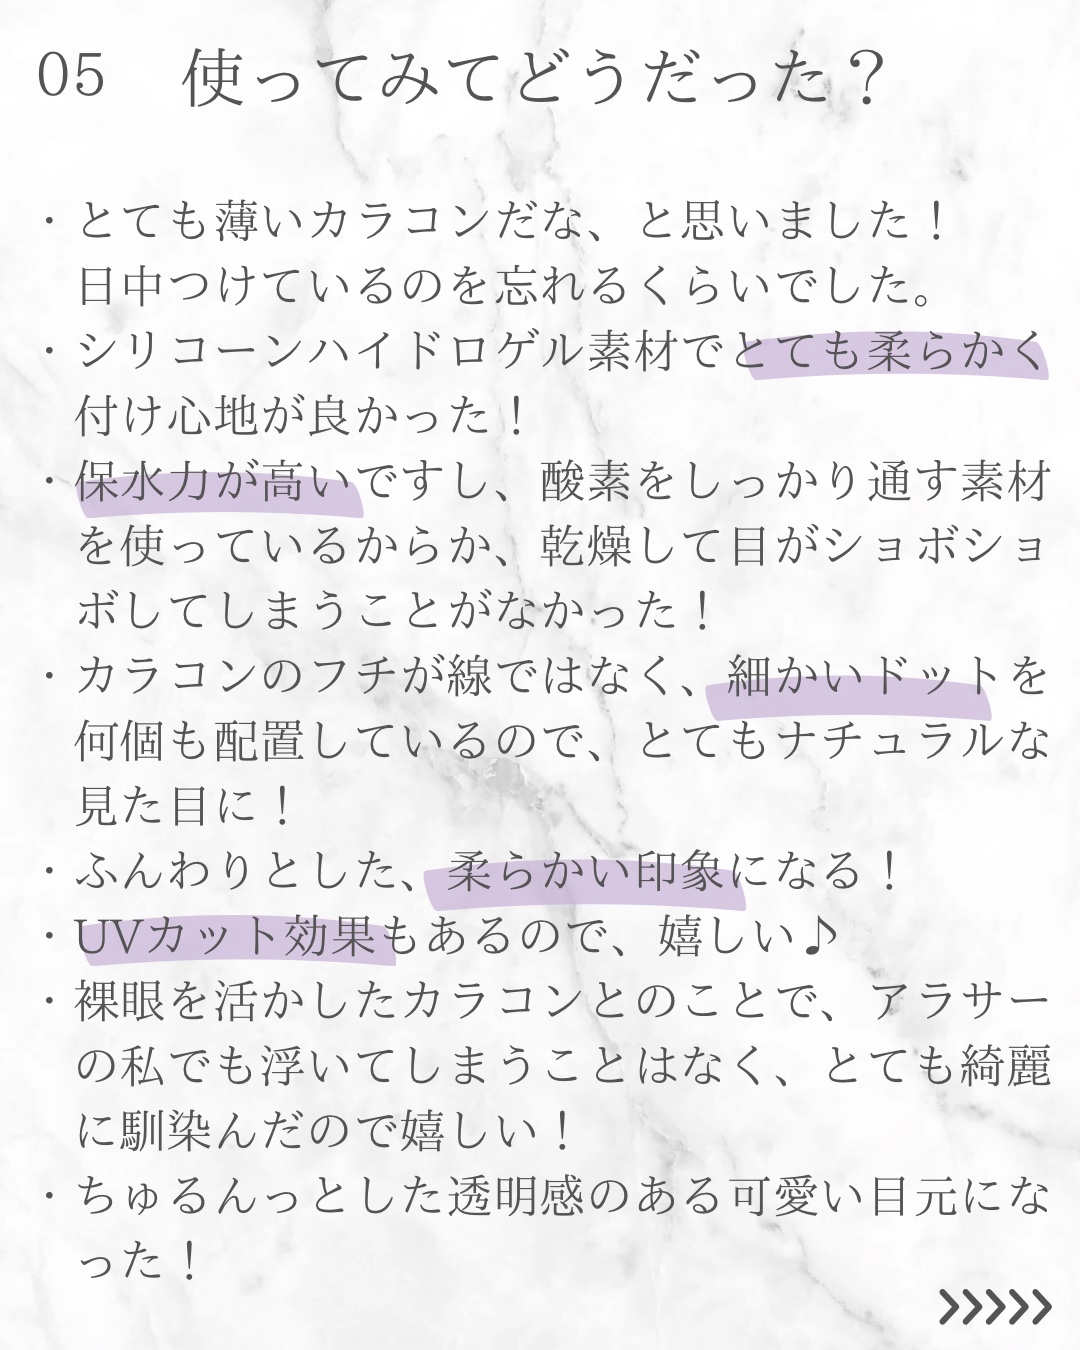 05 使ってみてどうだった？
・とても薄いカラコンだな、と思いました！
日中つけているのを忘れるくらいでした。
・シリコーンハイドロゲル素材でとても柔らかく
付け心地が良かった！
・保水力が高いですし、酸素をしっかり通す素材
を使っているからか、乾燥して目がショボショ
ボしてしまうことがなかった！
・カラコンのフチが線ではなく、細かいドットを
何個も配置しているので、とてもナチュラルな
見た目に！
・ふんわりとした、柔らかい印象になる！
・UVカット効果もあるので、嬉しい♪
・裸眼を活かしたカラコンとのことで、アラサー
の私でも浮いてしまうことはなく、とても綺麗
に馴染んだので嬉しい！
・ちゅるんっとした透明感のある可愛い目元にな
った！